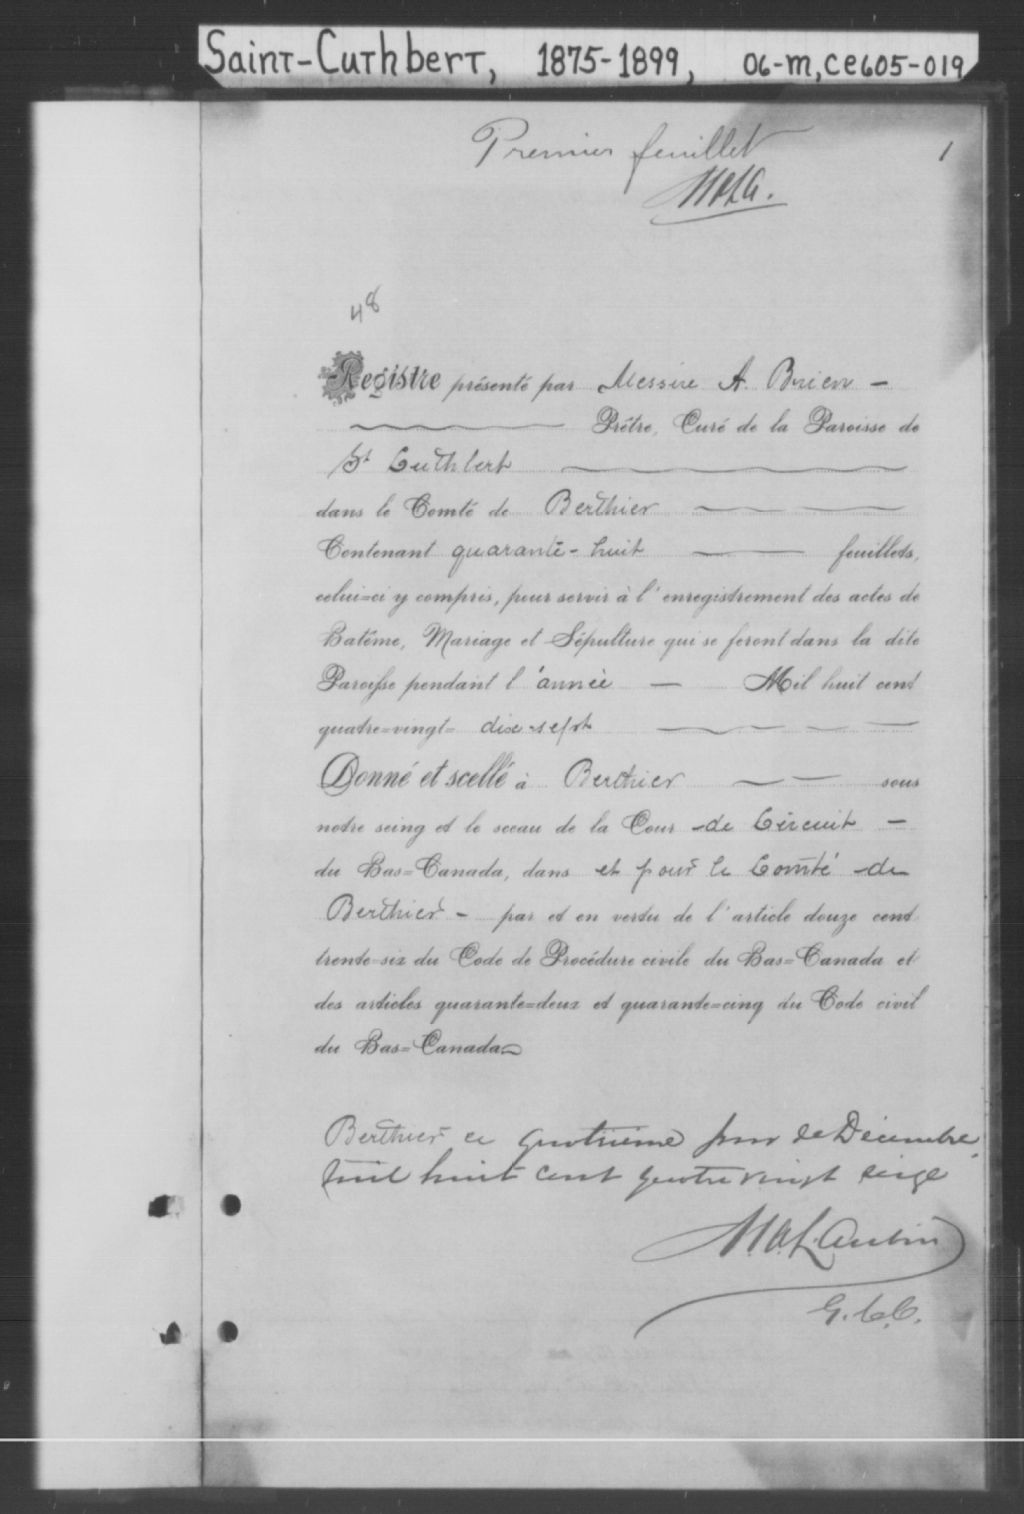 Saint-Cuthbert, 1875-1899, 06-M, CE605-019
Premier feuillet 1
MALA.
48
Registre présenté par Messire A. Brien -
Prêtre, Curé de la Paroisse de
St Cuthbert
dans le Comté de Berthier
Contenant quarante-huit feuillets,
celui=ci y compris, pour servir à l'enregistrement des actes de
Batême, Mariage et Sépulture qui se feront dans la dite
Paroisse pendant l'année — Mil huit cent
quatre=vingt= dix-sept
Donné et scellé à Berthier sous
notre seing et le sceau de la Cour de Circuit -
du Bas=Canada, dans et pour le Comté de
Berthier - par et en vertu de l'article douze cent
trente=six du Code de Procédure civile du Bas=Canada et
des articles quarante=deux et quarante=cinq du Code civil
du Bas=Canada
Berthier ce quatrième jour de Décembre
mil huit cent quatre vingt seize
M.A.L. Aubin
G.C.C.